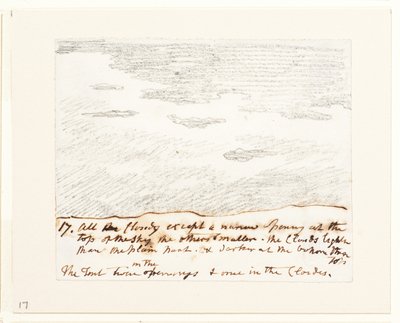 17. All Cloudy except a narrow opening at the
top of the Sky the others smaller. the Clouds lighter
than the plain part. & darker at the top than
The Tint twice in the openings & once in the Clouds.
17